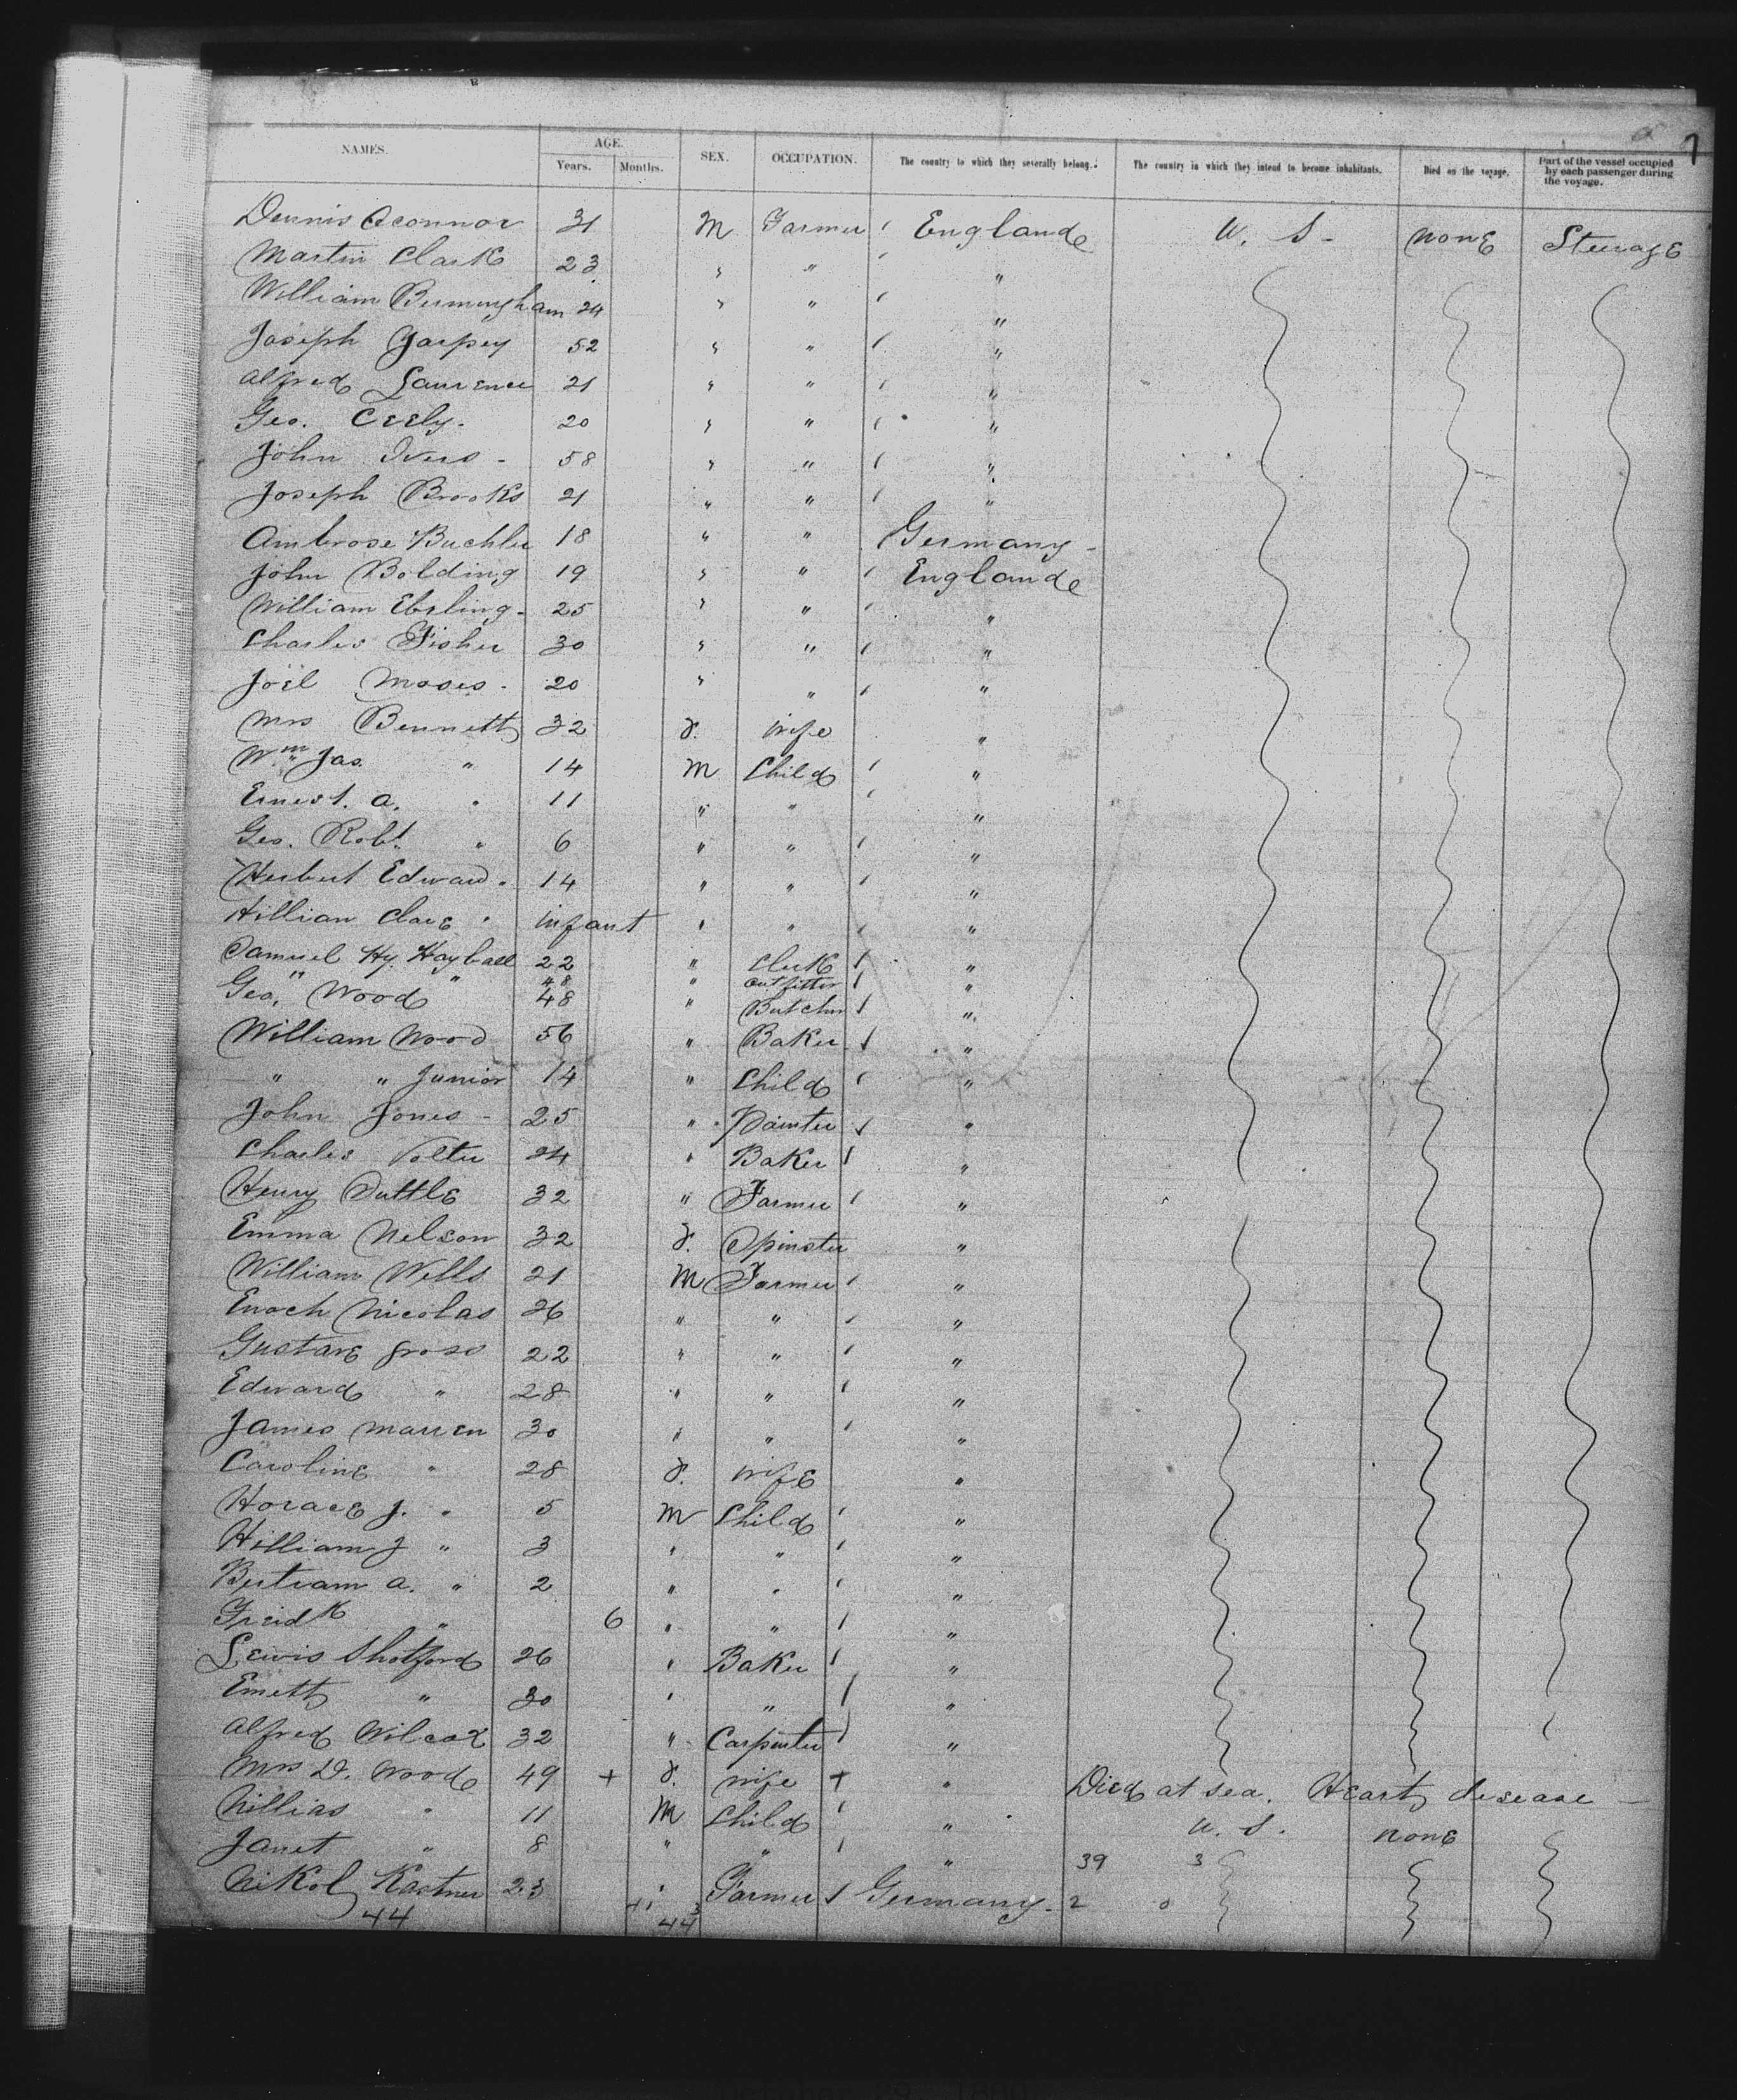 7
NAMES. AGE. SEX. OCCUPATION. The country to which they severally belong. The country in which they intend to become inhabitants. Died on the voyage. Part of the vessel occupied by each passenger during the voyage.
Years. Months.
Dennis Oconnor 31 M Farmer England U. S. none Steerage
Martin Clark 23 " " "
William Bermingham 24 " " "
Joseph Garpey 52 " " "
Alfred Laurence 21 " " "
Geo. Cerly. 20 " " "
John Ivers - 58 " " "
Joseph Brooks 21 " " "
Ambrose Buchler 18 " " Germany -
John Bolding 19 " " England
William Ebeling - 25 " " "
Charles Fisher 30 " " "
Joel Moses - 20 " " "
Mrs Bennett 32 F. wife "
Wm Jas. " 14 M Child "
Ernest. A. " 11 " " "
Geo. Robt. " 6 " " "
Herbert Edward " 14 " " "
Hillian Clare " infant " " "
Samuel Hy. Hayball 22 " Clerk "
" " 48 " outfitter "
Geo. Wood 48 " Butcher "
William Wood 56 " Baker "
" " Junior 14 " Child "
John Jones - 25 " Painter "
Charles Potter 24 " Baker "
Henry Suttle 32 " Farmer "
Emma Nelson 32 F. Spinster "
William Wells 21 M Farmer "
Enoch Nicolas 26 " " "
Gustave Gross 22 " " "
Edward " 28 " " "
James Marren 30 " " "
Caroline " 28 F. wife "
Horace J. " 5 M Child "
William J " 3 " " "
Bertram A. " 2 " " "
Freidk " 6 " " "
Lewis Shotford 26 " Baker "
Emett " 30 " " "
Alfred Wilcox 32 " Carpenter "
Mrs D. Wood 49 + F. wife + " Died at sea. Heart disease -
Nillias " 11 M Child " U. S. none
Janet " 8 " " " 39 3
Nikol Kastner 23 " Farmer Germany - 2 0
44 41 3
44